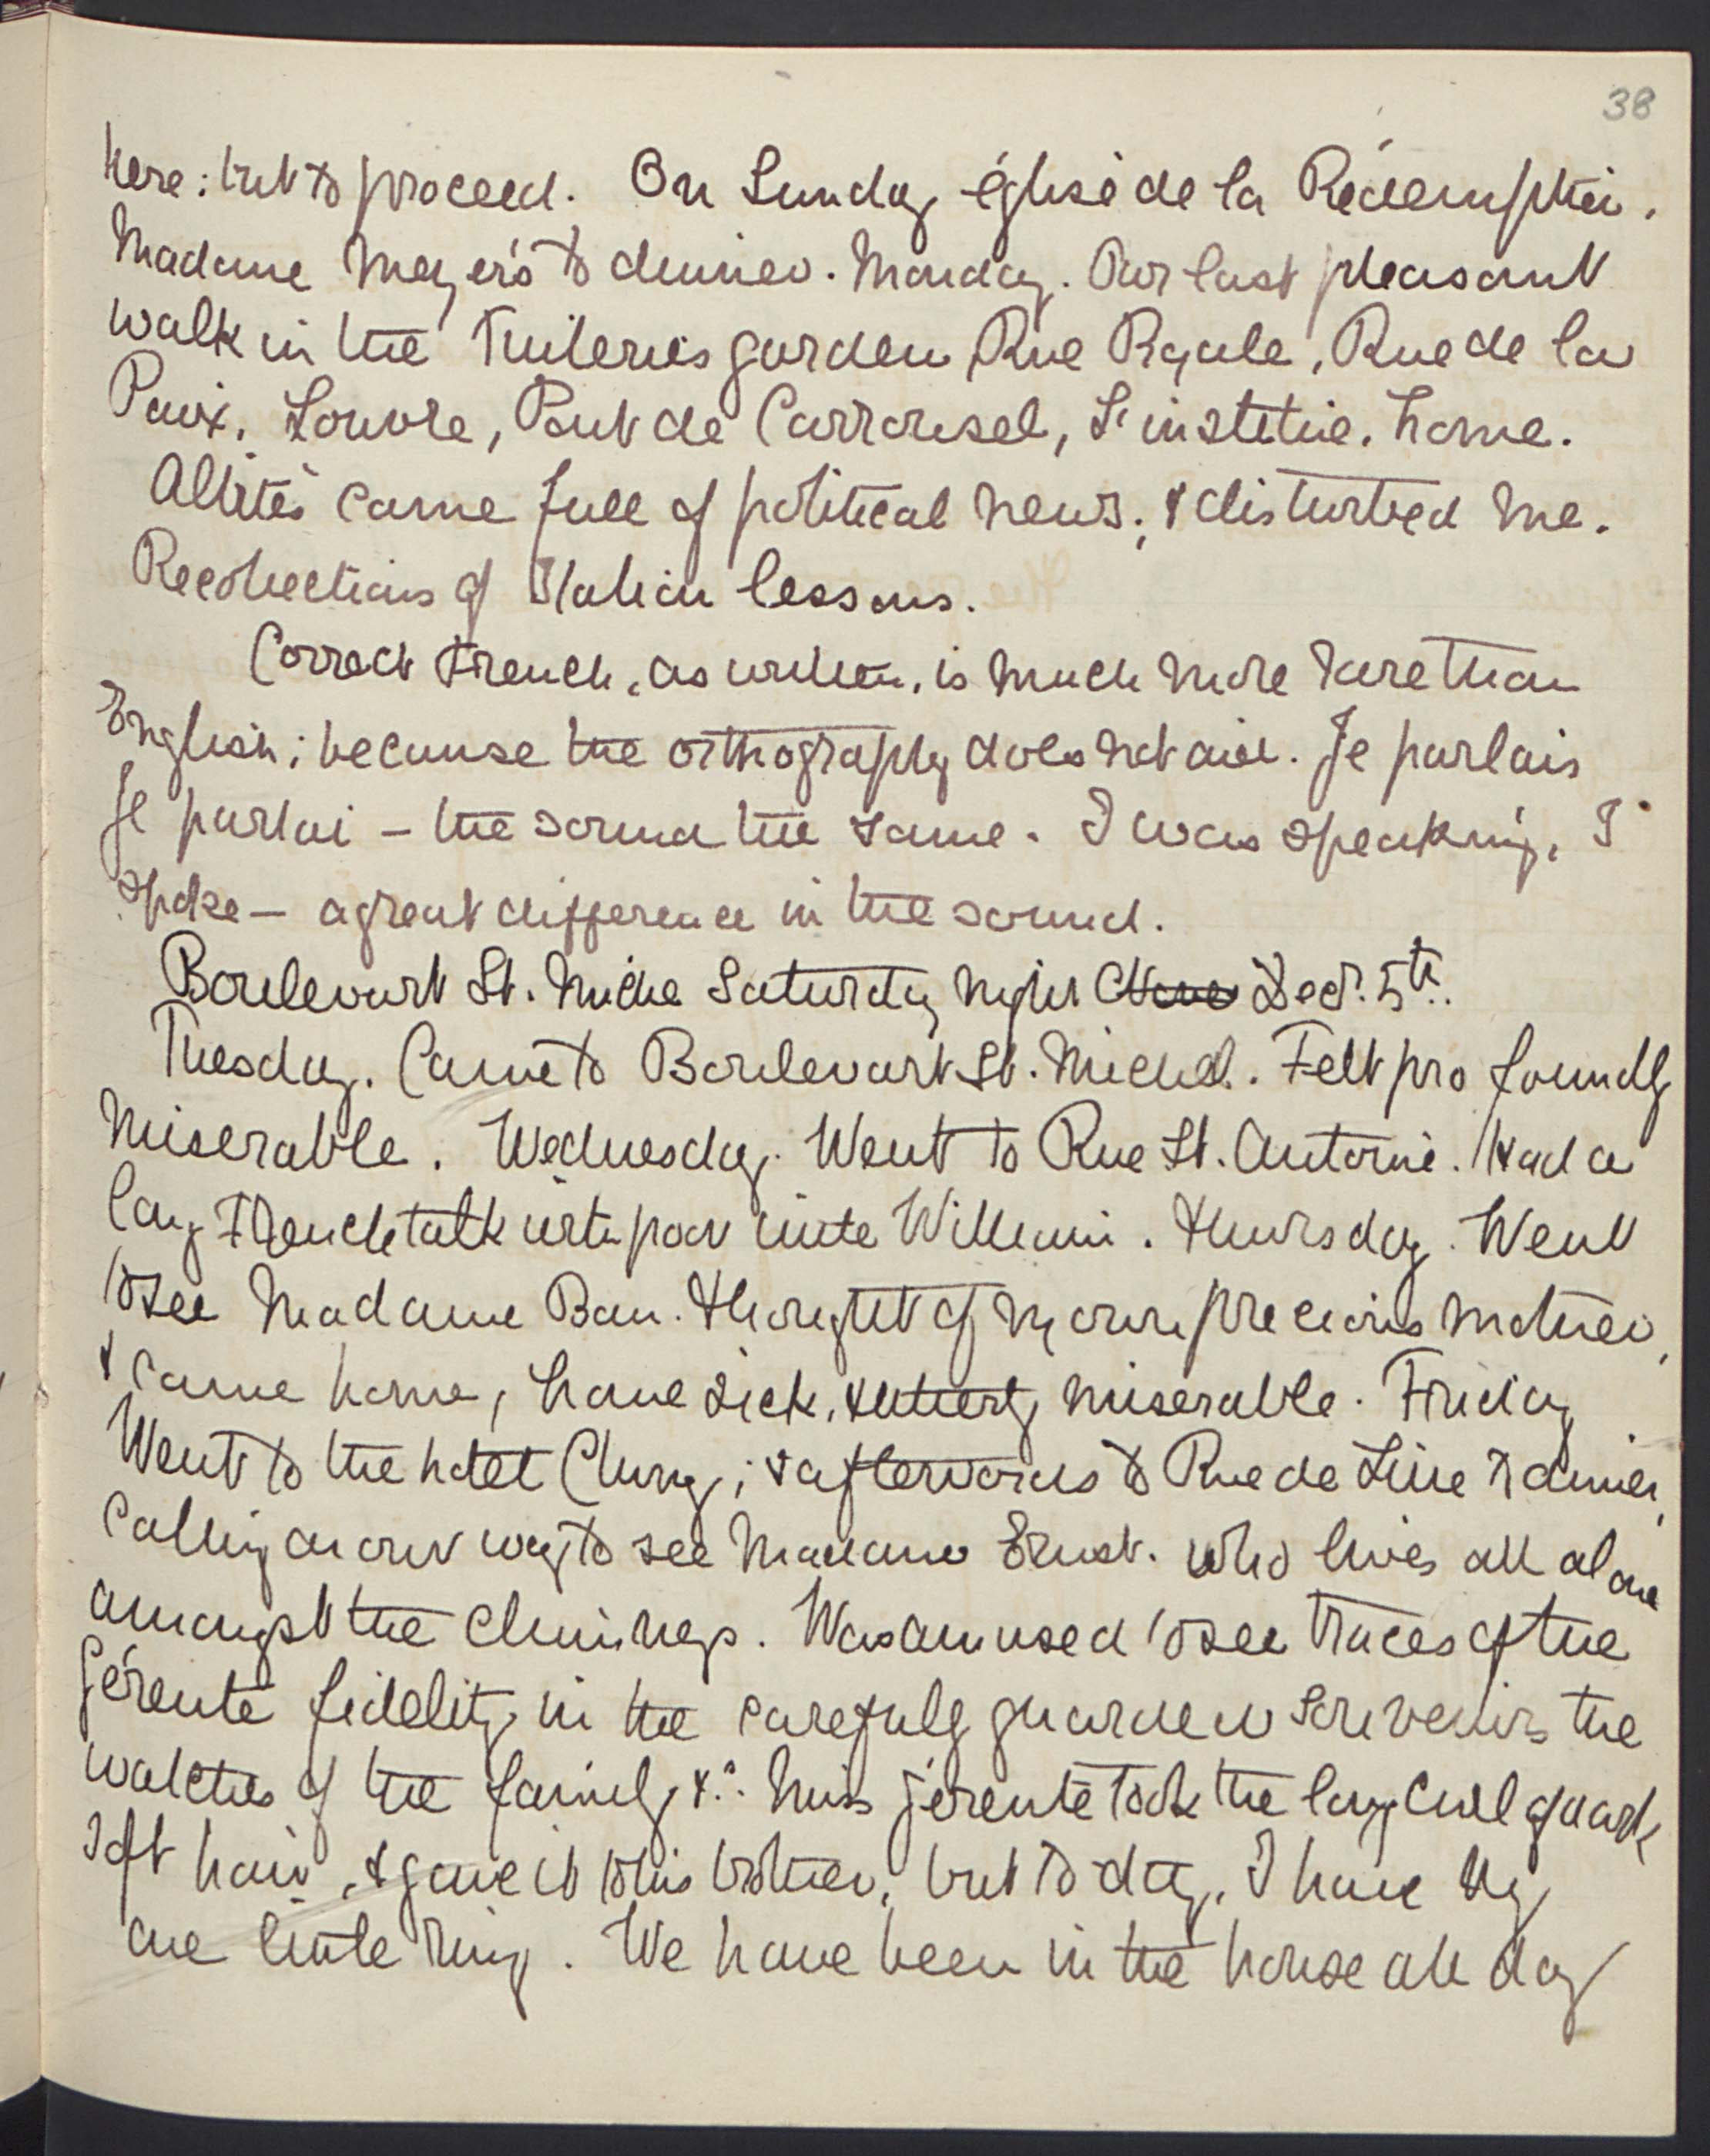 38
here: but to proceed. On Sunday église de la Rédemption.
Madame Meyer's to dinner. Monday. Our last pleasant
walk in the Tuileries garden, Rue Royale, Rue de la
Paix, Louvre, Pont de Carrousel, L'institute. home.
Albités came full of political news; & disturbed me.
Recollections of Italian lessons.
Correct French, as written, is much more rare than
English; because the orthography does not aid. Je parlais
Je parlai – the sound the same. I was speaking, I
spoke – a great difference in the sound.
Boulevart St. Michel Saturday night Dec. 5th.
Tuesday. Came to Boulevart St. Michel. Felt profoundly
miserable. Wednesday. Went to Rue St. Antoine. Had a
long French talk with poor little William. Thursday. Went
to see Madame Bau. Thought of my own precious mother,
& came home, home sick, & utterly miserable. Friday
Went to the hotel Cluny; & afterwards to Rue de Lille to dinner,
Calling on our way to see Madame Ernst. who lives all alone
amongst the chimneys. Was amused to see traces of the
gérente fidelity, in the carefully guarded souvenirs the
watches of the family, &c. Miss gérente took the long curl of dark
soft hair, & gave it to his brother; but to-day, I have my
one little ring. We have been in the house all day